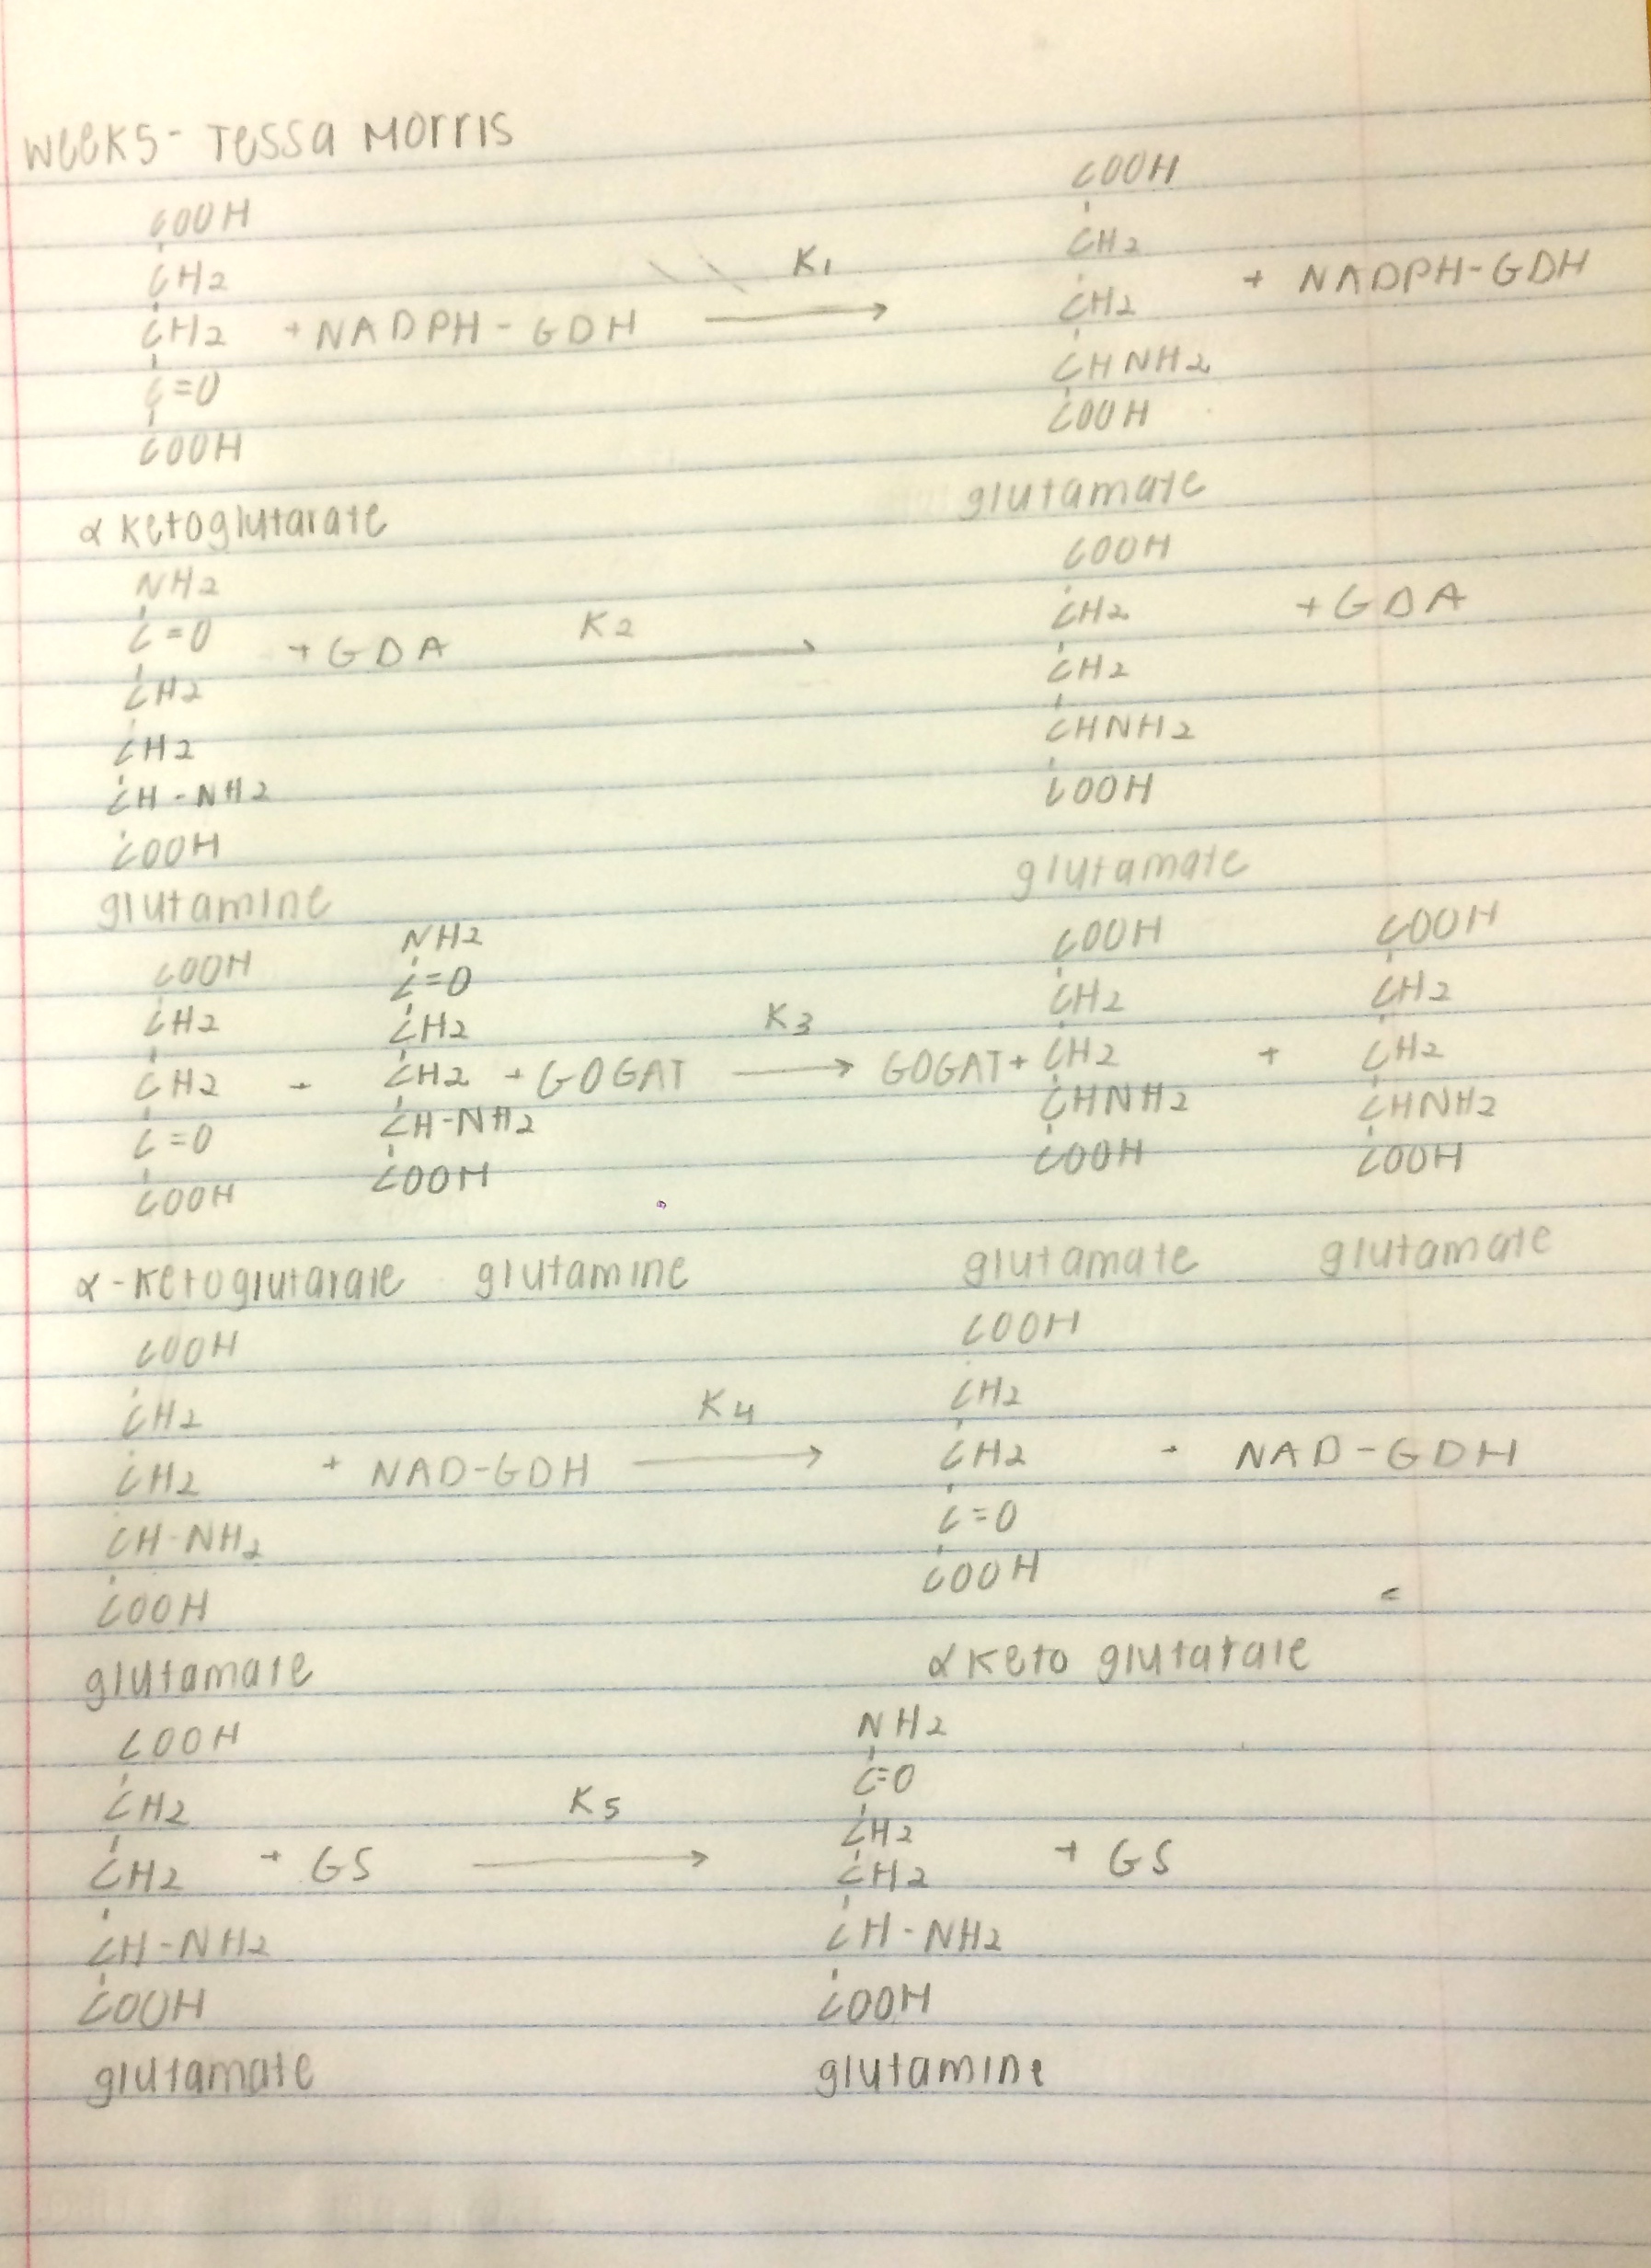 Week 5 - Tessa Morris
COOH
CH2
CH2 + NADPH - GDH
C=O
COOH
α ketoglutarate
K1
→
COOH
CH2
CH2 + NADPH-GDH
CHNH2
COOH
glutamate
NH2
C=O + GDA
CH2
CH2
CH-NH2
COOH
glutamine
K2
→
COOH
CH2 + GDA
CH2
CHNH2
COOH
glutamate
COOH
CH2
CH2 +
C=O
COOH
α-ketoglutarate
NH2
C=O
CH2
CH2 + GOGAT
CH-NH2
COOH
glutamine
K3
→
GOGAT +
COOH
CH2
CH2 +
CHNH2
COOH
glutamate
COOH
CH2
CH2
CHNH2
COOH
glutamate
COOH
CH2
CH2 + NAD-GDH
CH-NH2
COOH
glutamate
K4
→
COOH
CH2
CH2 + NAD-GDH
C=O
COOH
α keto glutarate
COOH
CH2
CH2 + GS
CH-NH2
COOH
glutamate
K5
→
NH2
C=O
CH2
CH2 + GS
CH-NH2
COOH
glutamine